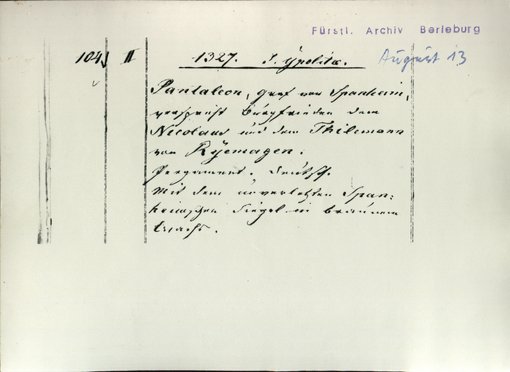 Fürstl. Archiv Berleburg
August 13
104. II 1327. S. Ypolitæ.
Pantaleon, Graf von Spanheim,
verspricht Burgfrieden dem
Nicolaus und dem Thilemann
von Ryemagen.
Pergament. Deutsch.
Mit dem unverletzten Span-
heimschen Siegel in braunem
Wachs.